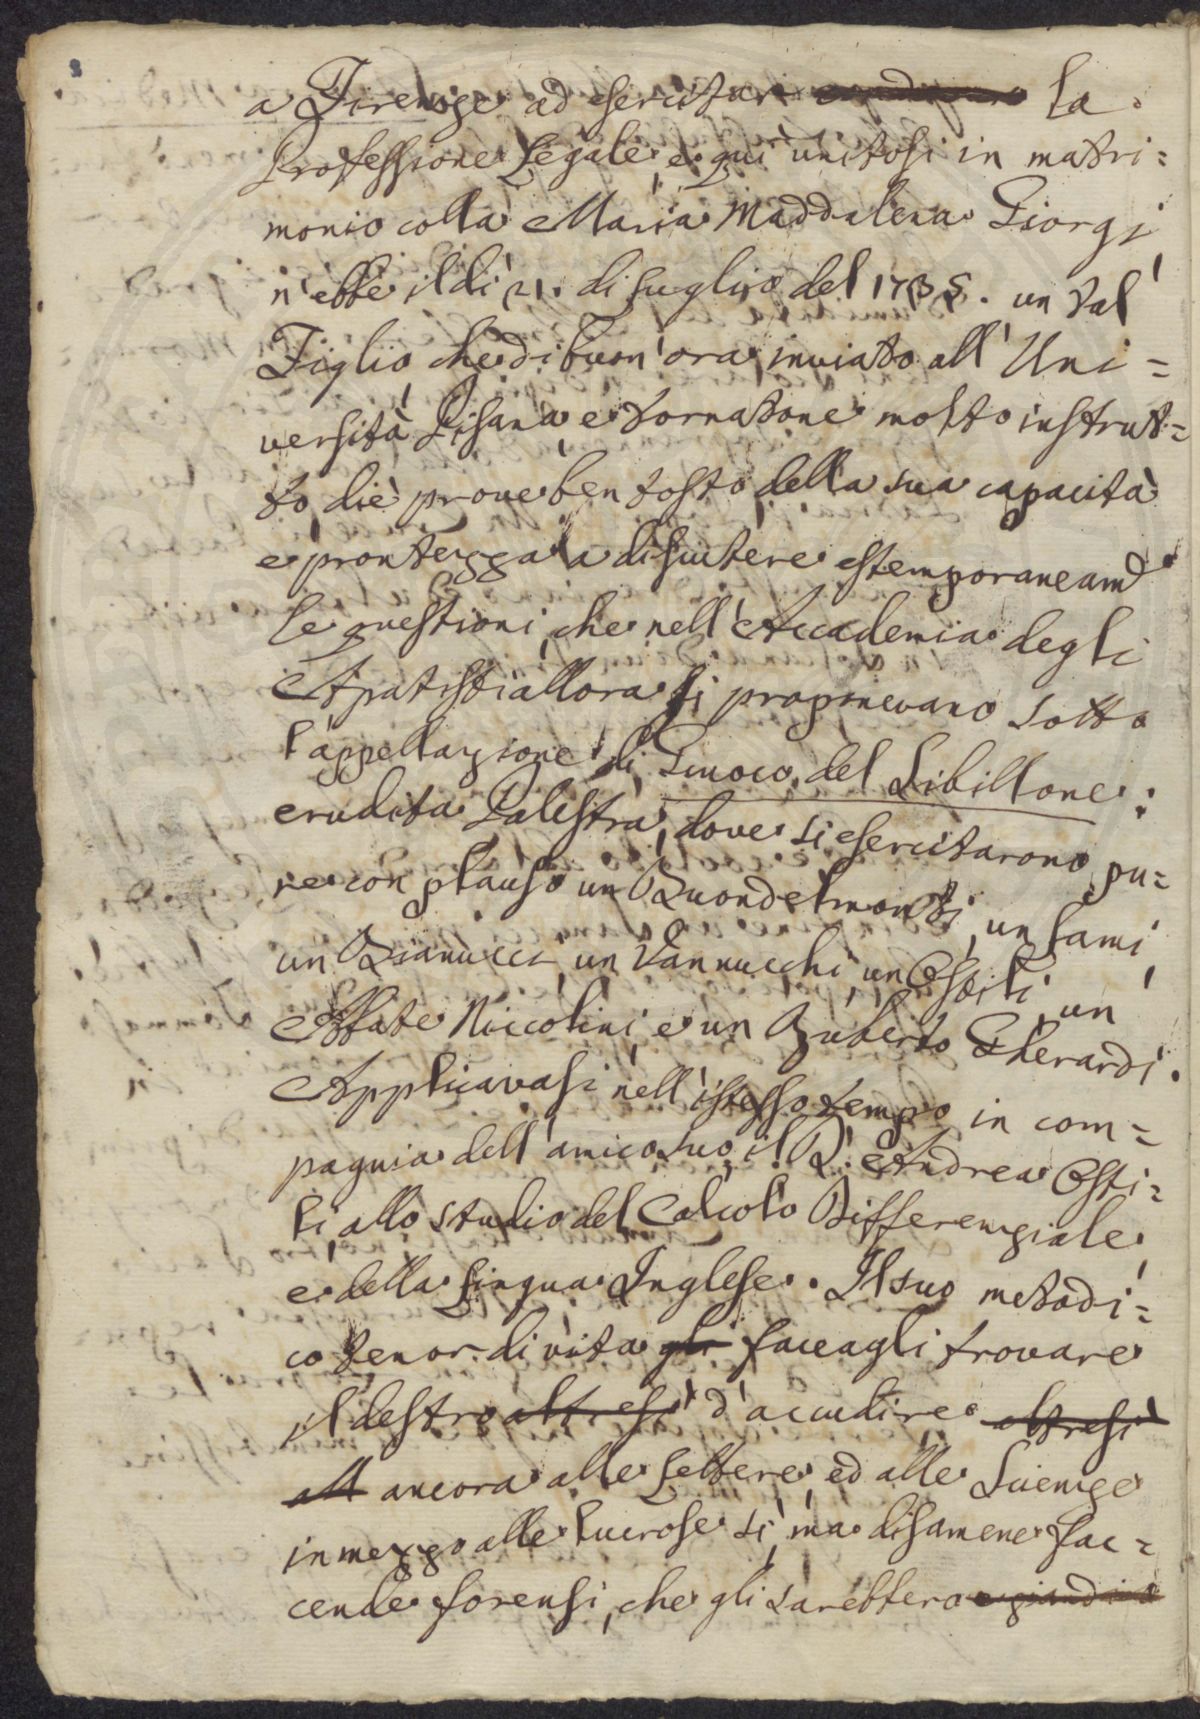 a Firenze ad esercitare la
Professione Legale, e qui unitosi in matri=
monio colla Maria Maddalena Giorgi
n'ebbe il dì 21. di Luglio del 1735. un tal
Figlio che di buon'ora inviato all'Uni=
versità Pisana, e tornatone molto instrut=
to, diè prove ben tosto della sua capacità
e prontezza a discutere estemporaneamte
le questioni, che nell'Accademia degli
Apatisti allora si proponevano sotto
l'appellazione di Giuoco del Sibillone:
erudita Palestra, dove si esercitarono pu=
re con plauso un Buondelmonti, un Lami,
un Bianucci, un Vannucchi, un Ostili, un
Abbate Niccolini, e un Ruberto Gherardi.
Applicavasi nell'istesso tempo in com=
pagnia dell'amico suo, il D. Andrea Osti=
li, allo studio del Calcolo Differenziale,
e della Lingua Inglese. Il suo metodi=
co tenor di vita gli faceagli trovare
il destro altresì d'accudire altresì
all ancora alle Lettere, ed alle Scienze
in mezzo alle lucrose sì, ma disamene fac=
cende forensi, che gli sarebbero